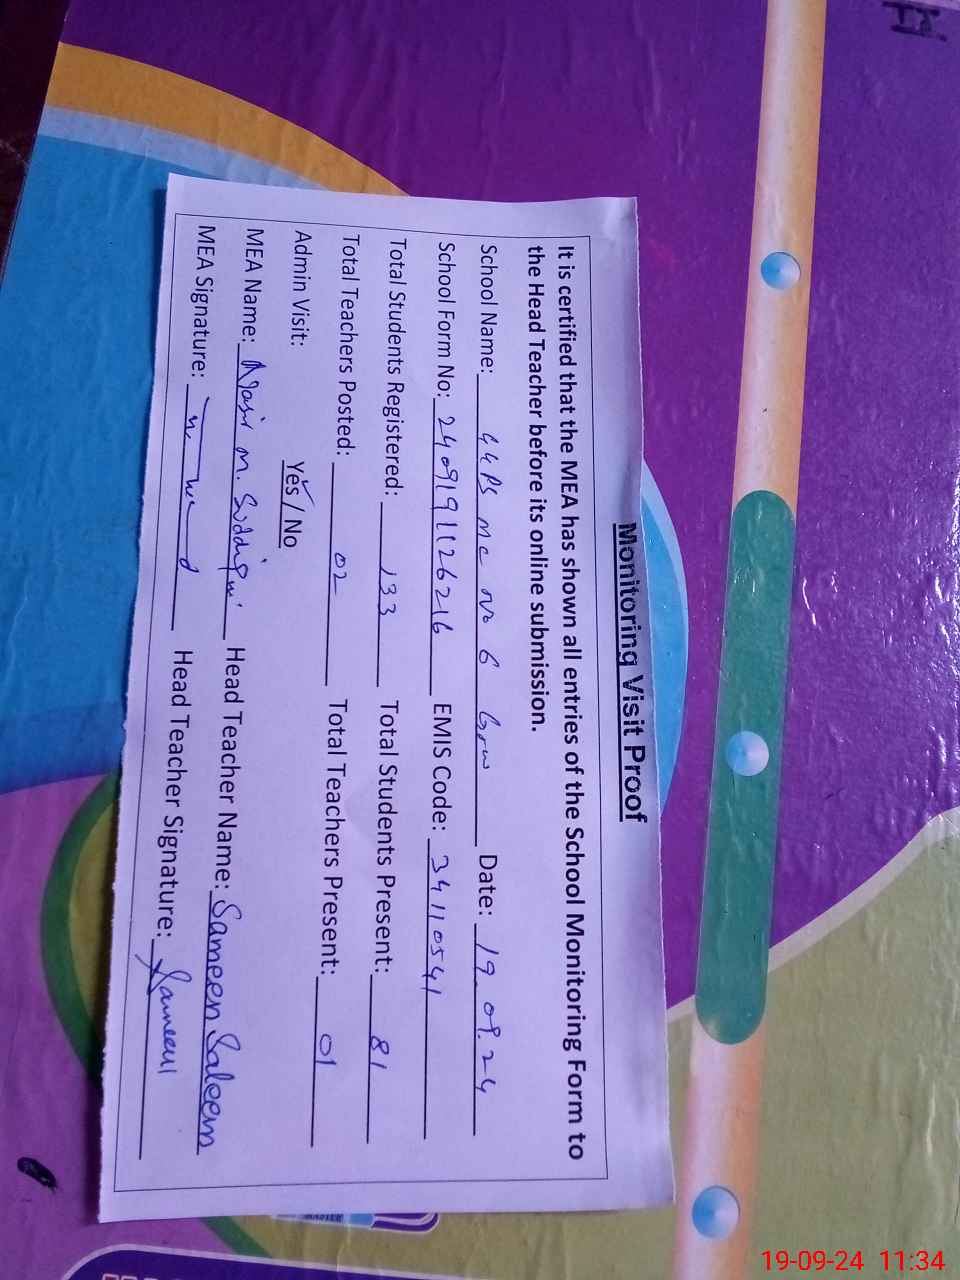 Monitoring Visit Proof
It is certified that the MEA has shown all entries of the School Monitoring Form to
the Head Teacher before its online submission.
School Name: GGPS MC No 6 Grw Date: 19.09.24
School Form No: 2409191126216 EMIS Code: 34110541
Total Students Registered: 133 Total Students Present: 81
Total Teachers Posted: 02 Total Teachers Present: 01
Admin Visit: Yes / No
MEA Name: Nasir M. Siddiqui Head Teacher Name: Sameen Saleem
MEA Signature: Head Teacher Signature: Sameen
19-09-24 11:34